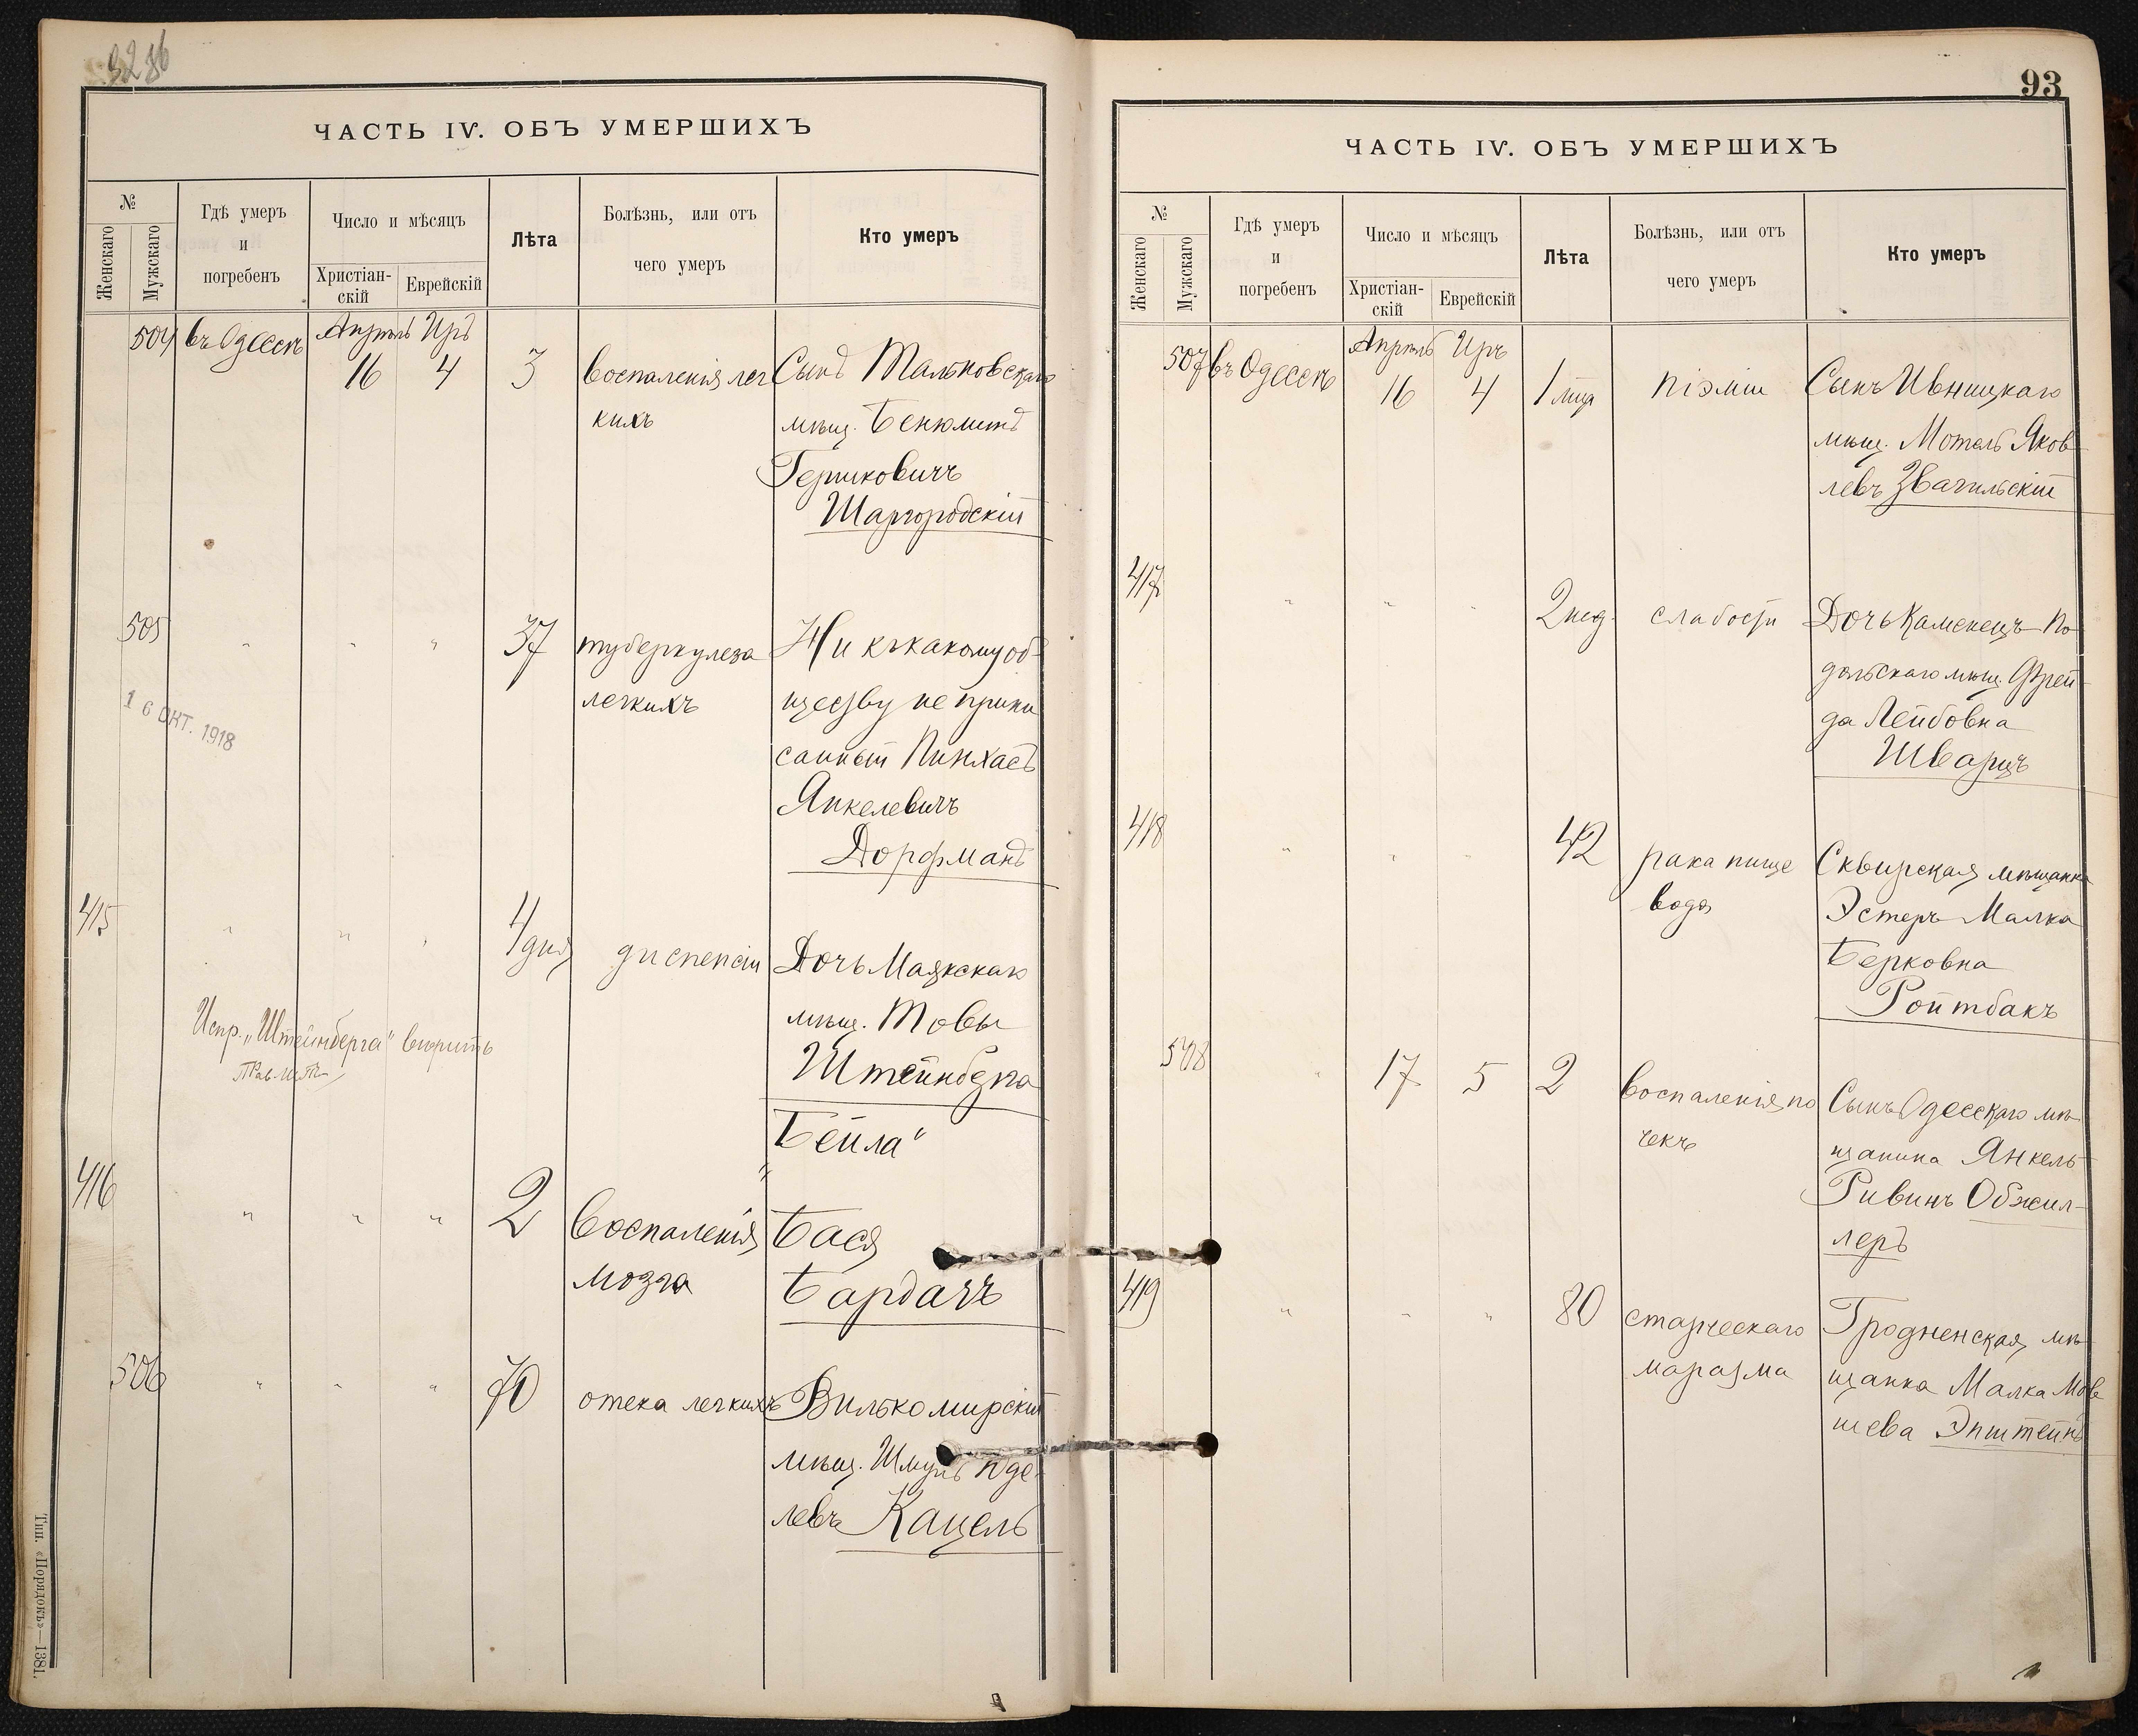 3286
ЧАСТЬ IV. ОБЪ УМЕРШИХЪ
№
Женскаго
Мужскаго
Гдѣ умеръ
и
погребенъ
Число и мѣсяцъ
Христіан-
скій
Еврейскій
Лѣта
Болѣзнь, или отъ
чего умеръ
Кто умеръ
504 въ Одессѣ Апрѣль Иръ
16 4 3 воспаленія лег Сынъ Тальновскаго
кихъ мѣщ. Бенюминъ
Гершковичъ
Шаргородскій
505 " " " 37 туберкулеза Ни къ какому об-
легкихъ ществу не припи
санный Пинхасъ
Янкелевичъ
Дорфманъ
16 ОКТ. 1918
415 " " " 4 дня диспепсіи Дочь Маякскаго
мѣщ. Товы
Штейнберга
"Бейла"
Испр. „Штейнберга" вѣрить
416 " " " 2 Воспаленія Бася
мозга Бардачъ
506 " " " 70 отека легкихъ Вилькомирскій
мѣщ. Шмуль Юде-
левъ Кацель
Тип. «Порядокъ»—1381.
93
ЧАСТЬ IV. ОБЪ УМЕРШИХЪ
№
Женскаго
Мужскаго
Гдѣ умеръ
и
погребенъ
Число и мѣсяцъ
Христіан-
скій
Еврейскій
Лѣта
Болѣзнь, или отъ
чего умеръ
Кто умеръ
507 въ Одессѣ Апрѣль Иръ
16 4 1 мца піэміи Сынъ Ивницкаго
мѣщ. Мотель Яков-
левъ Звагильскій
417 " " " 2 нед. слабости Дочь Каменецъ-По
дольскаго мѣщ. Фрей-
да Лейбовна
Шварцъ
418 " " " 42 рака пище Сквирская мѣщанка
вода Эстеръ-Малка
Берковна
Ройтбакъ
508 " 17 5 2 воспаленія по Сынъ Одесскаго мѣ-
чекъ щанина Янкель-
Ривинъ Обжил-
леръ
419 " " " 80 старческаго Гродненская мѣ-
маразма щанка Малка Мов
шева Эпштейнъ